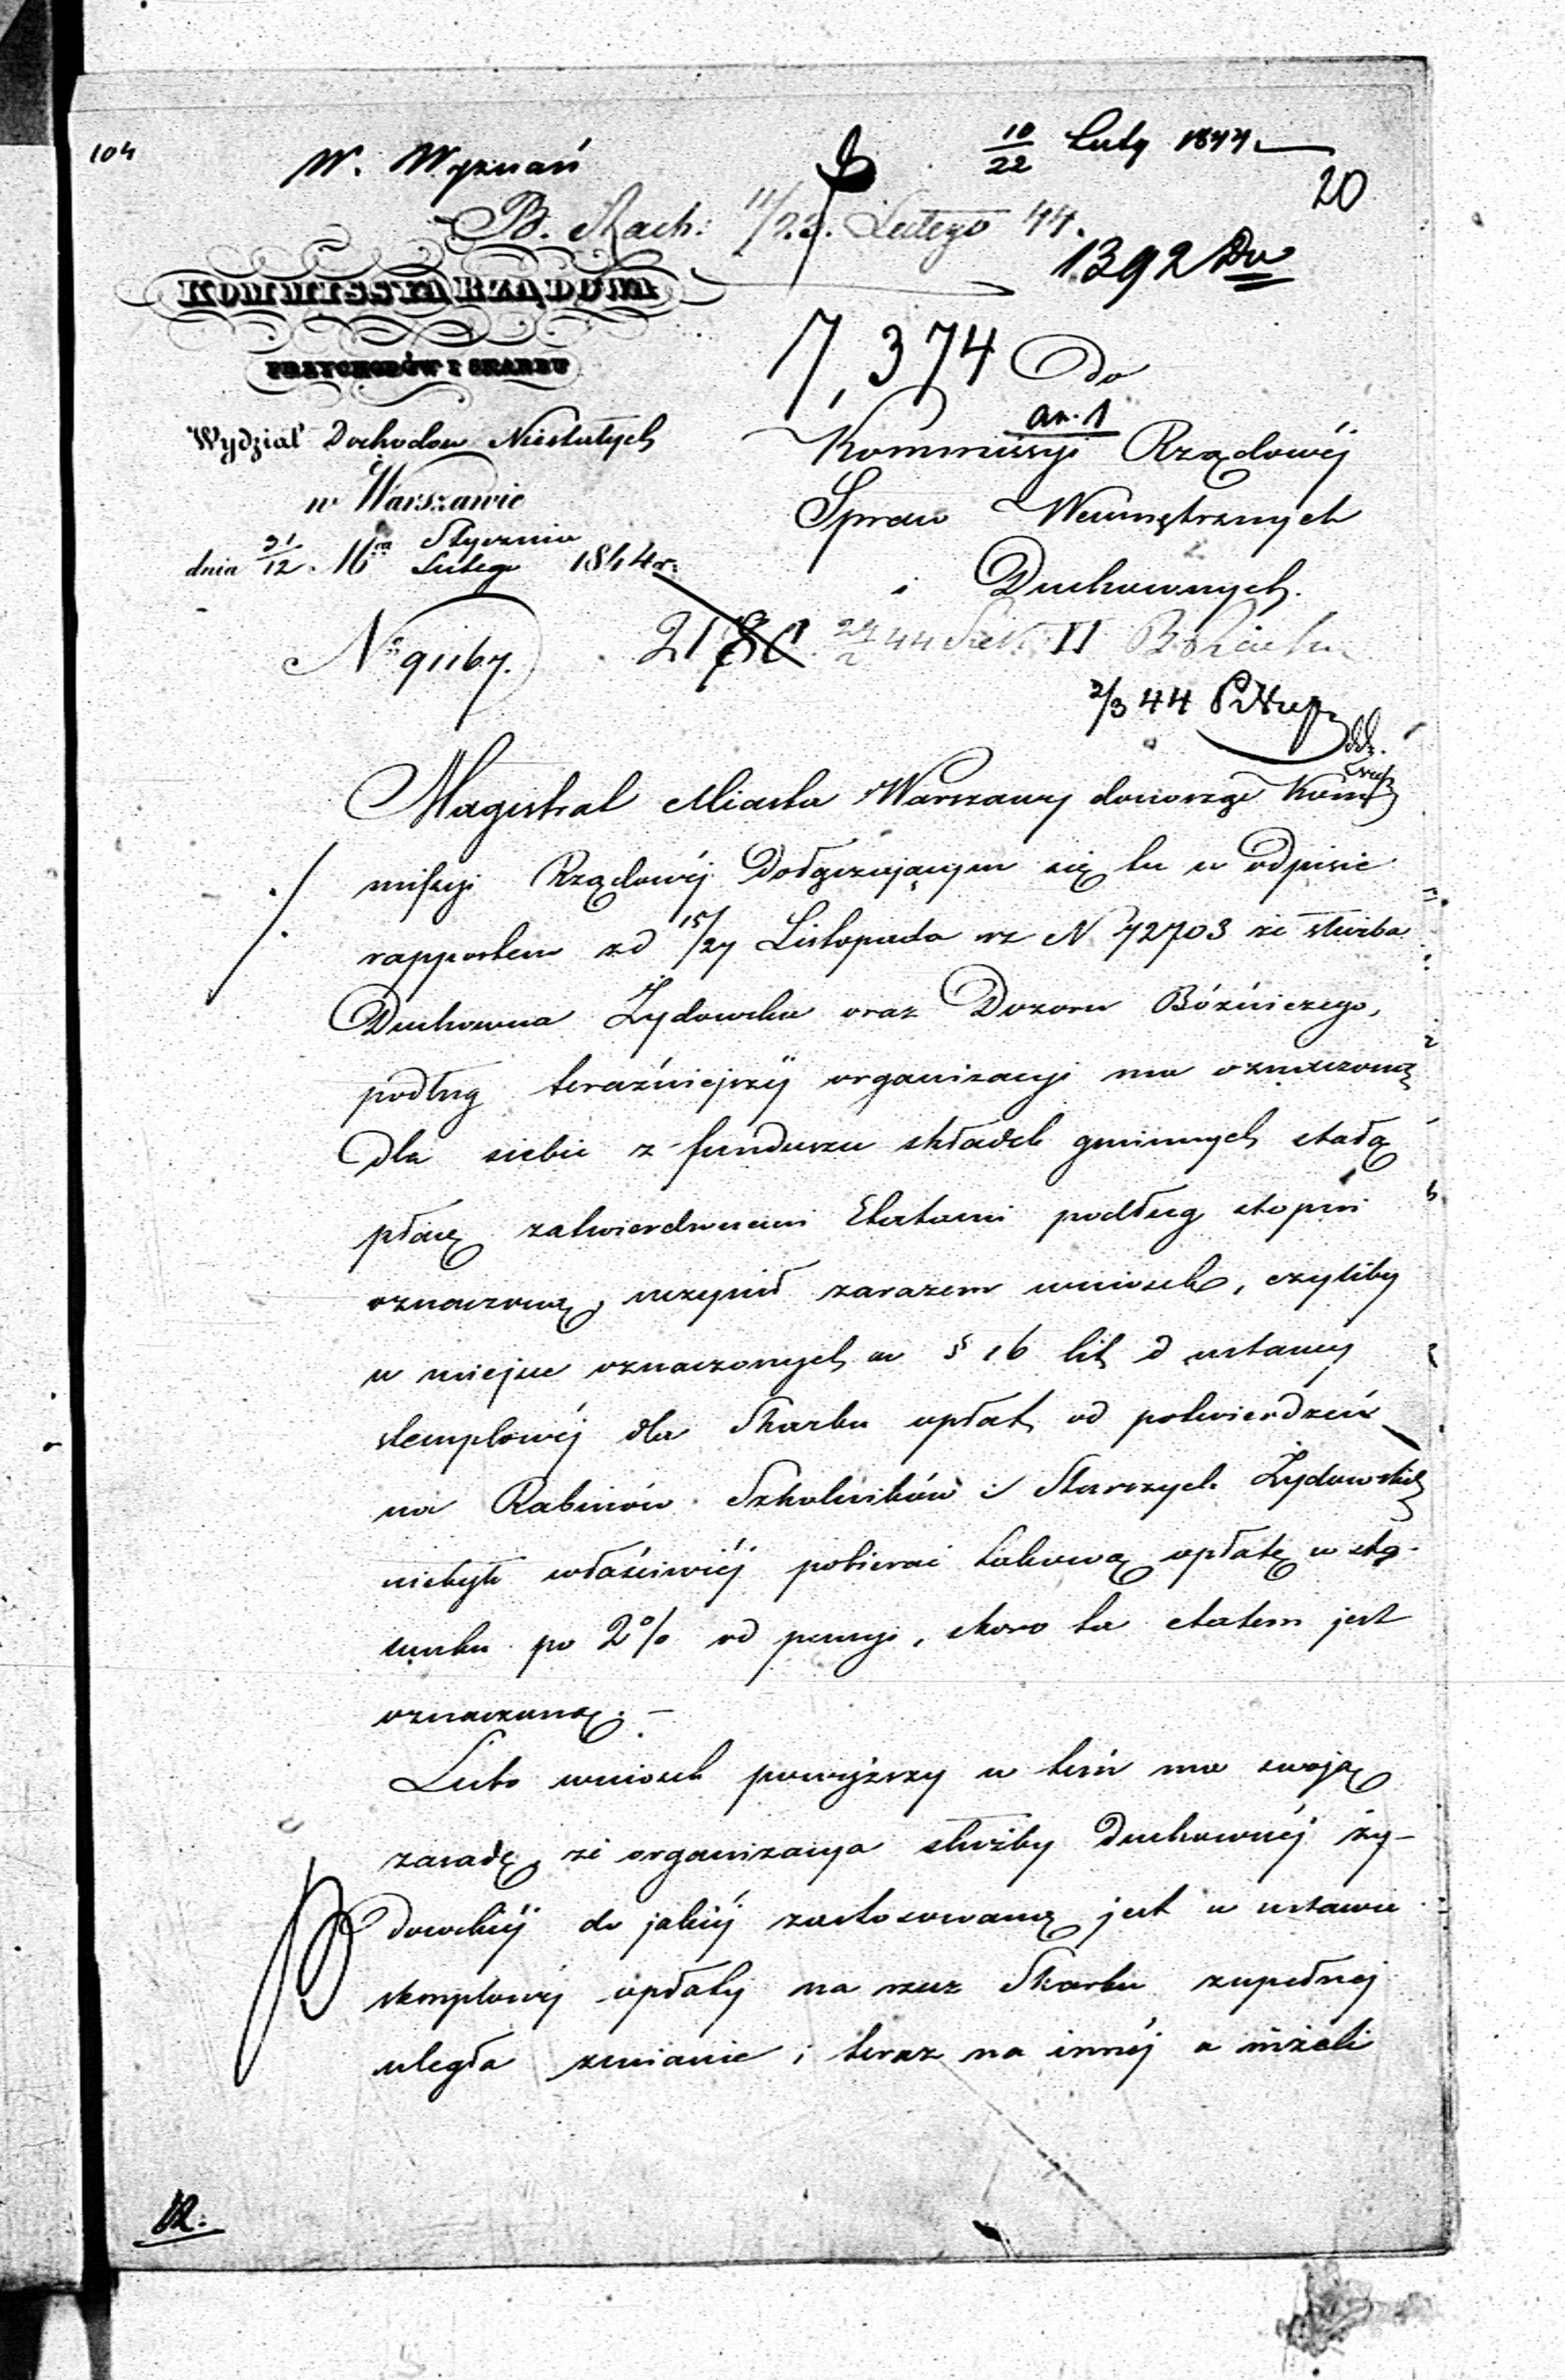 104
W. Wyznań
10/22 Luty 1844
20
B. Rach: 11/23. Lutego 44.
1392 Dw
KOMMISSYA RZĄDOWA
PRZYCHODÓW I SKARBU
7,374 Do
an. 1
Wydział Dochodów Niestałych
Kommissyi Rządowéj
w Warszawie
Spraw Wewnętrznych
dnia 31/12 Stycznia Lutego 1844 r.
i Duchownych.
2/3 44
Magistrat Miasta Warszawy doniosłszy Kom
missyi Rządowéj Dołączającym się tu w odpisie
rapportem z d 15/27 Listopada rz N 72703 że służba
Duchowna Żydowska oraz Dozoru Bóźniczego,
podług teraźniejszéj organizacyi ma oznaczoną
dla siebie z funduszu składek gminnych stałą
płacę zatwierdzonemi Etatami podług stopni
oznaczoną, uczynił zarazem wniosek, czyliby
w miejsce oznaczonych w § 16 lit d ustawy
stemplowéj dla Skarbu opłat od potwierdzeń
na Rabinów Szkolników i Starszych Żydowskich
niebyło właściwiéj pobierać takową opłatę w sto-
sunku po 2% od pensyi, skoro ta etatem jest
oznaczoną. –
Lubo wniosek powyższy w tém ma swoją
zasadę, że organizacya służby Duchownéj ży-
dowskiéj do jakiéj zastosowaną jest w ustawie
stemplowéj opłaty na rzecz Skarbu zupełnej
uległa zmianie i teraz na innéj a niżeli
12.